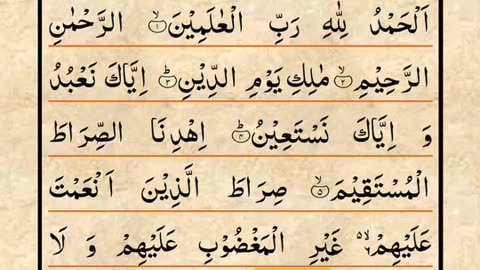 اَلْحَمْدُ لِلّٰهِ رَبِّ الْعٰلَمِيْنَۙ۝۱ الرَّحْمٰنِ
الرَّحِيْمِۙ۝۲ مٰلِكِ يَوْمِ الدِّيْنِؕ۝۳ اِيَّاكَ نَعْبُدُ
وَ اِيَّاكَ نَسْتَعِيْنُؕ۝۴ اِهْدِنَا الصِّرَاطَ
الْمُسْتَقِيْمَۙ۝۵ صِرَاطَ الَّذِيْنَ اَنْعَمْتَ
عَلَيْهِمْ۬ۙ۶ غَيْرِ الْمَغْضُوْبِ عَلَيْهِمْ وَ لَا